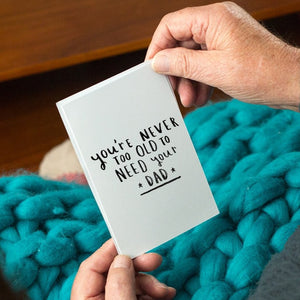 you're NEVER
TOO OLD TO
NEED your
★ DAD ★